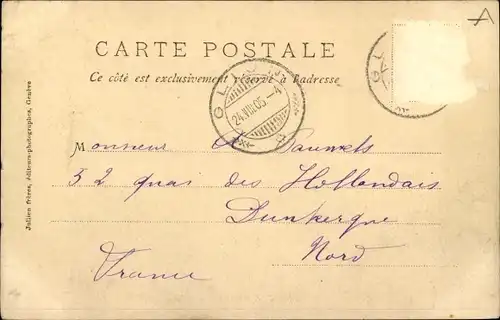 A
CARTE POSTALE
Ce côté est exclusivement réservé à l'adresse
24.VIII.05-4
Monsieur A Pauwels
32 quai des Hollandais
Dunkerque
Nord
France
Jullien frères, éditeurs-photographes, Genève